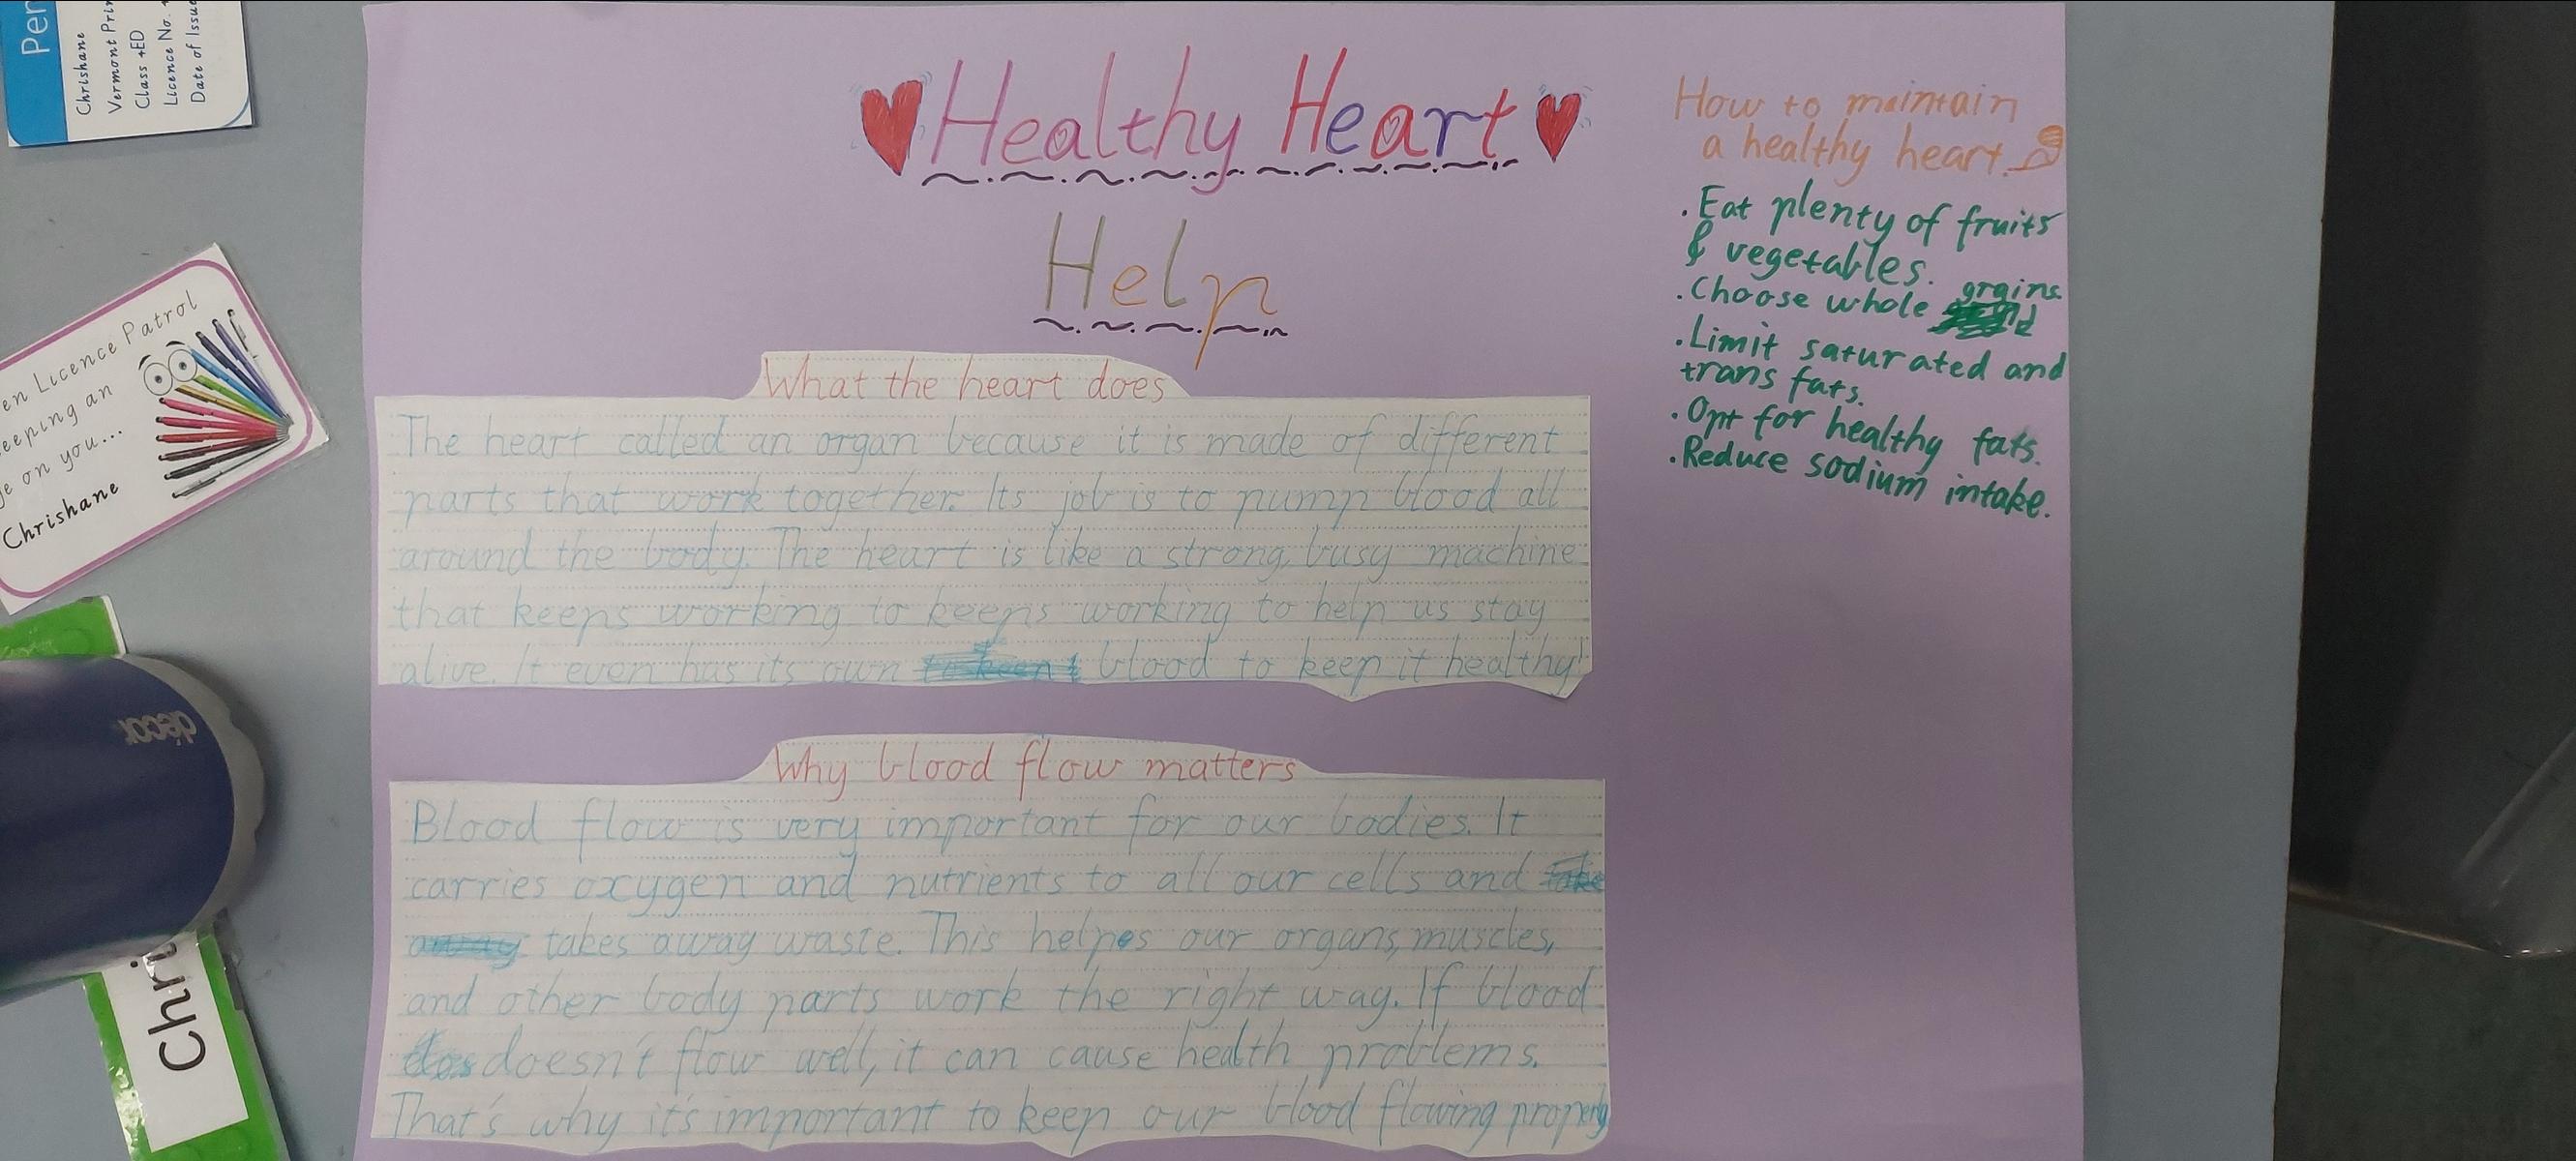 Per
Chrishane
Vermont Prim
Class +ED
Licence No.
Date of Issue
en Licence Patrol
eeping an
e on you...
Chrishane
décor
Chri
Healthy Heart
Help
What the heart does
The heart called an organ because it is made of different
parts that work together. Its job is to pump blood all
around the body. The heart is like a strong, busy machine
that keeps working to keeps working to help us stay
alive. It even has its own blood to keep it healthy!
Why blood flow matters
Blood flow is very important for our bodies. It
carries oxygen and nutrients to all our cells and
takes away waste. This helpes our organs, muscles,
and other body parts work the right way. If blood
doesn't flow well, it can cause health problems.
That's why it's important to keep our blood flowing properly
How to maintain
a healthy heart.
. Eat plenty of fruits
& vegetables.
. Choose whole grains.
. Limit saturated and
trans fats.
. Opt for healthy fats.
. Reduce sodium intake.